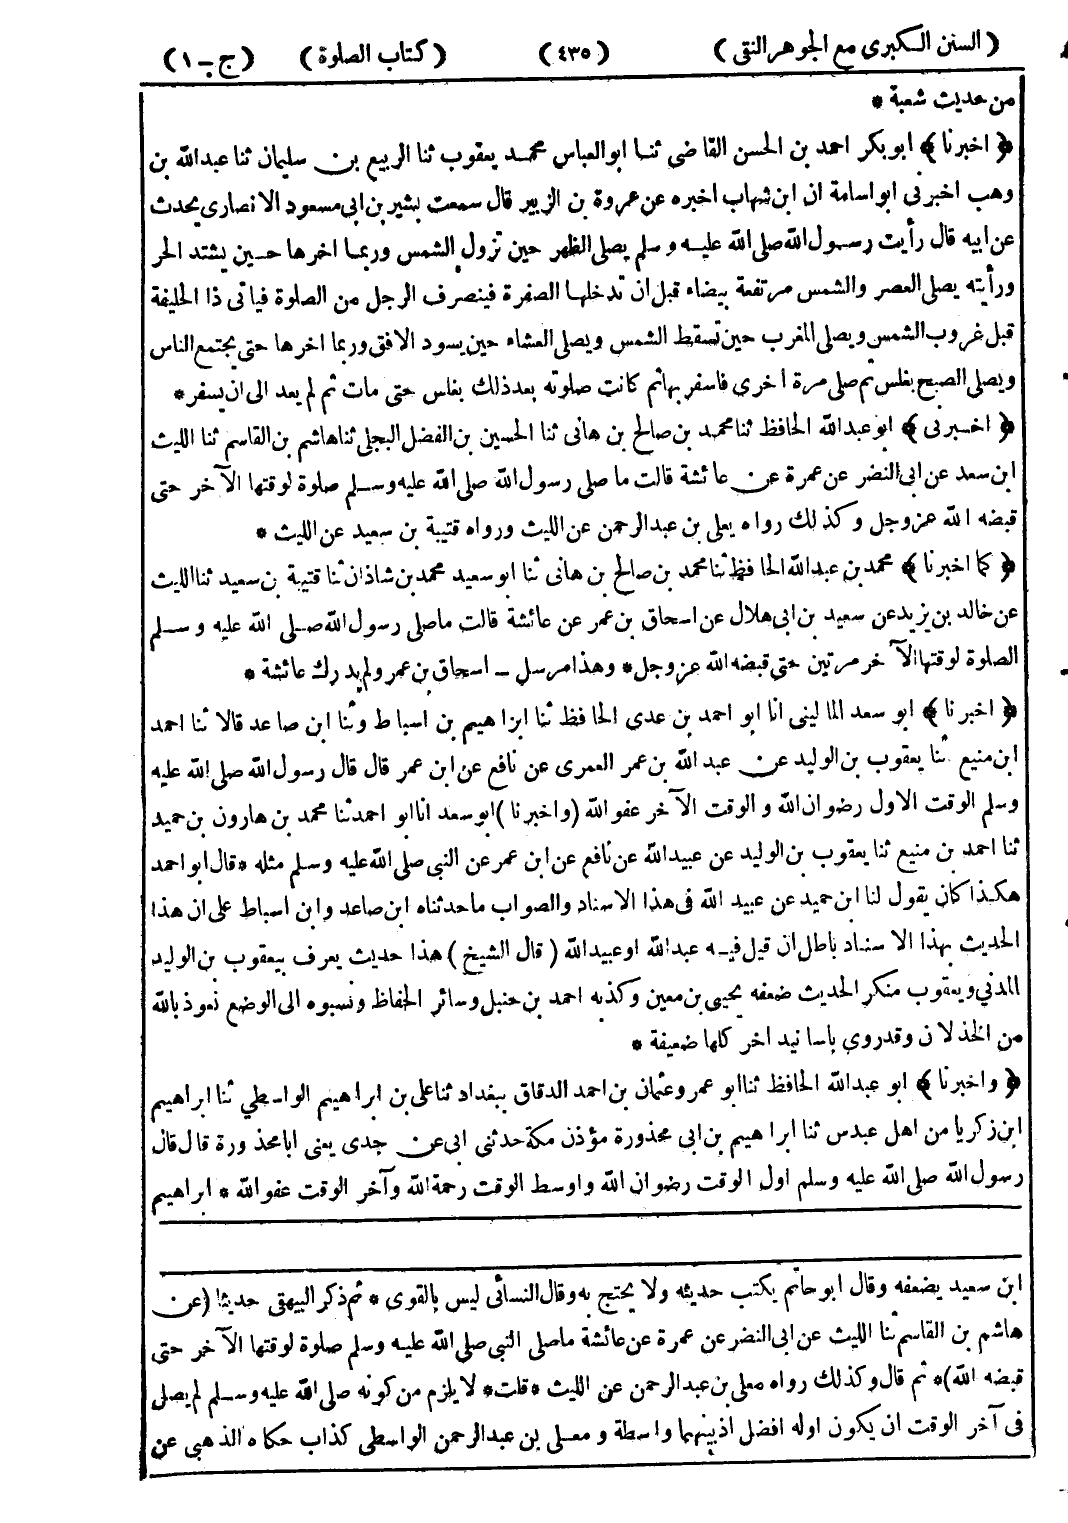 ( السنن الكبرى مع الجوهر النقى ) ( ٤٣٥ ) ( كتاب الصلوة ) ( ج - ١ )
من حديث شعبة *
﴿ اخبرنا ﴾ ابو بكر احمد بن الحسن القاضى ثنا ابو العباس محمد يعقوب ثنا الربيع بن سليمان ثنا عبد الله بن
وهب اخبرنى ابو اسامة ان ابن شهاب اخبره عن عروة بن الزبير قال سمعت بشير بن ابى مسعود الانصارى يحدث
عن ابيه قال رأيت رسول الله صلى الله عليه وسلم يصلى الظهر حين تزول الشمس وربما اخرها حين يشتد الحر
ورأيته يصلى العصر والشمس مرتفعة بيضاء قبل ان تدخلها الصفرة فينصرف الرجل من الصلوة فيأتى ذا الحليفة
قبل غروب الشمس ويصلى المغرب حين تسقط الشمس ويصلى العشاء حين يسود الافق وربما اخرها حتى يجتمع الناس
ويصلى الصبح بغلس ثم صلى مرة اخرى فاسفر بها ثم كانت صلوته بعد ذلك بغلس حتى مات ثم لم يعد الى ان يسفر *
﴿ اخبرنى ﴾ ابو عبد الله الحافظ ثنا محمد بن صالح بن هانى ثنا الحسين بن الفضل البجلى ثنا هاشم بن القاسم ثنا الليث
ابن سعد عن ابى النضر عن عمرة عن عائشة قالت ما صلى رسول الله صلى الله عليه وسلم صلوة لوقتها الآخر حتى
قبضه الله عز وجل وكذلك رواه يعلى بن عبد الرحمن عن الليث ورواه قتيبة بن سعيد عن الليث *
﴿ كما اخبرنا ﴾ محمد بن عبد الله الحافظ ثنا محمد بن صالح بن هانى ثنا ابو سعيد محمد بن شاذان ثنا قتيبة بن سعيد ثنا الليث
عن خالد بن يزيد عن سعيد بن ابى هلال عن اسحاق بن عمر عن عائشة قالت ما صلى رسول الله صلى الله عليه وسلم
الصلوة لوقتها الآخر مرتين حتى قبضه الله عز وجل * وهذا مرسل - اسحاق بن عمر ولم يدرك عائشة *
﴿ اخبرنا ﴾ ابو سعد المالينى انا ابو احمد بن عدى الحافظ ثنا ابراهيم بن اسباط وثنا ابن صاعد قالا ثنا احمد
ابن منيع ثنا يعقوب بن الوليد عن عبد الله بن عمر العمرى عن نافع عن ابن عمر قال قال رسول الله صلى الله عليه
وسلم الوقت الاول رضوان الله و الوقت الآخر عفو الله (واخبرنا) ابو سعد انا ابو احمد ثنا محمد بن هارون بن حميد
ثنا احمد بن منيع ثنا يعقوب بن الوليد عن عبيد الله عن نافع عن ابن عمر عن النبى صلى الله عليه وسلم مثله * قال ابو احمد
هكذا كان يقول لنا ابن حميد عن عبيد الله فى هذا الاسناد والصواب ما حدثناه ابن صاعد وابن اسباط على ان هذا
الحديث بهذا الاسناد باطل ان قيل فيه عبد الله او عبيد الله ( قال الشيخ ) هذا حديث يعرف بيعقوب بن الوليد
المدني ويعقوب منكر الحديث ضعفه يحيى بن معين وكذبه احمد بن حنبل وسائر الحفاظ ونسبوه الى الوضع نعوذ بالله
من الخذلان وقد روي باسانيد اخر كلها ضعيفة *
﴿ واخبرنا ﴾ ابو عبد الله الحافظ ثنا ابو عمرو عثمان بن احمد الدقاق ببغداد ثنا على بن ابراهيم الواسطي ثنا ابراهيم
ابن زكريا من اهل عبدس ثنا ابراهيم بن ابى محذورة مؤذن مكة حدثنى ابى عن جدى يعنى ابا محذورة قال قال
رسول الله صلى الله عليه وسلم اول الوقت رضوان الله واوسط الوقت رحمة الله وآخر الوقت عفو الله * ابراهيم
ابن سعيد يضعفه وقال ابو حاتم يكتب حديثه ولا يحتج به وقال النسائى ليس بالقوى * ثم ذكر البيهقى حديثا (عن
هاشم بن القاسم ثنا الليث عن ابى النضر عن عمرة عن عائشة ما صلى النبى صلى الله عليه وسلم صلوة لوقتها الآخر حتى
قبضه الله) * ثم قال وكذلك رواه معلى بن عبد الرحمن عن الليث * قلت * لا يلزم من كونه صلى الله عليه وسلم لم يصلى
فى آخر الوقت ان يكون اوله افضل اذ بينهما واسطة و معلى بن عبد الرحمن الواسطى كذاب حكاه الذهبى عن